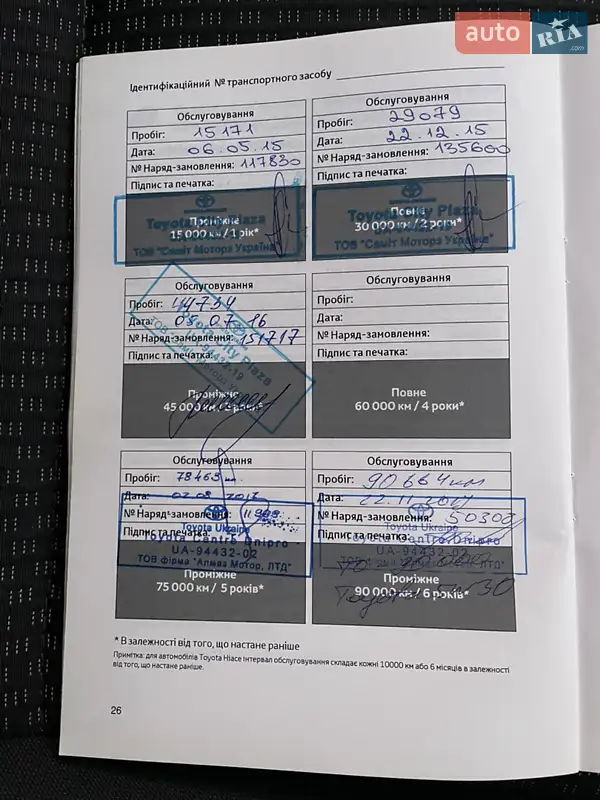 auto RIA .com
Ідентифікаційний № транспортного засобу
Обслуговування
Пробіг: 15171
Дата: 06.05.15
№ Наряд-замовлення: 117830
Підпис та печатка:
Toyota City Plaza
Проміжне
15 000 км / 1 рік*
ТОВ "Саміт Моторз Україна"
Обслуговування
Пробіг: 29079
Дата: 22.12.15
№ Наряд-замовлення: 135600
Підпис та печатка:
Toyota City Plaza
Повне
30 000 км / 2 роки*
ТОВ "Саміт Моторз Україна"
Обслуговування
Пробіг: 44734
Дата: 05 07 16
№ Наряд-замовлення: 151717
Підпис та печатка:
Toyota City Plaza
Проміжне
45 000 км / 3 роки*
Обслуговування
Пробіг:
Дата:
№ Наряд-замовлення:
Підпис та печатка:
Повне
60 000 км / 4 роки*
Обслуговування
Пробіг: 78463
Дата: 02.08.2017
№ Наряд-замовлення:
Підпис та печатка:
Toyota Ukraine
Toyota Centre Dnipro
UA-94432-02
ТОВ фірма "Алмаз Мотор, ЛТД"
Проміжне
75 000 км / 5 років*
Обслуговування
Пробіг: 90664км
Дата: 22.11.2017
№ Наряд-замовлення: 50308
Підпис та печатка:
Toyota Ukraine
Toyota Centre Dnipro
UA-94432-02
Проміжне
90 000 км / 6 років*
* В залежності від того, що настане раніше
Примітка: для автомобілів Toyota Hiace інтервал обслуговування складає кожні 10000 км або 6 місяців в залежності
від того, що настане раніше.
26